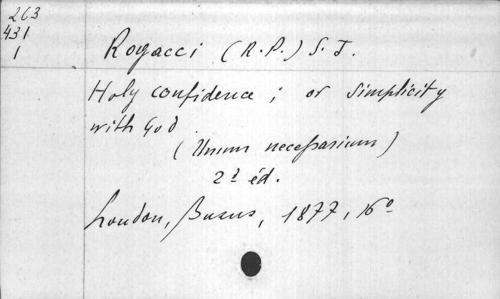 263
431
1
Rogacci (R.P.) S.J.
Holy confidence ; or simplicity
with God
(Unum necessarium)
2d éd.
London, Burns, 1877, 16°